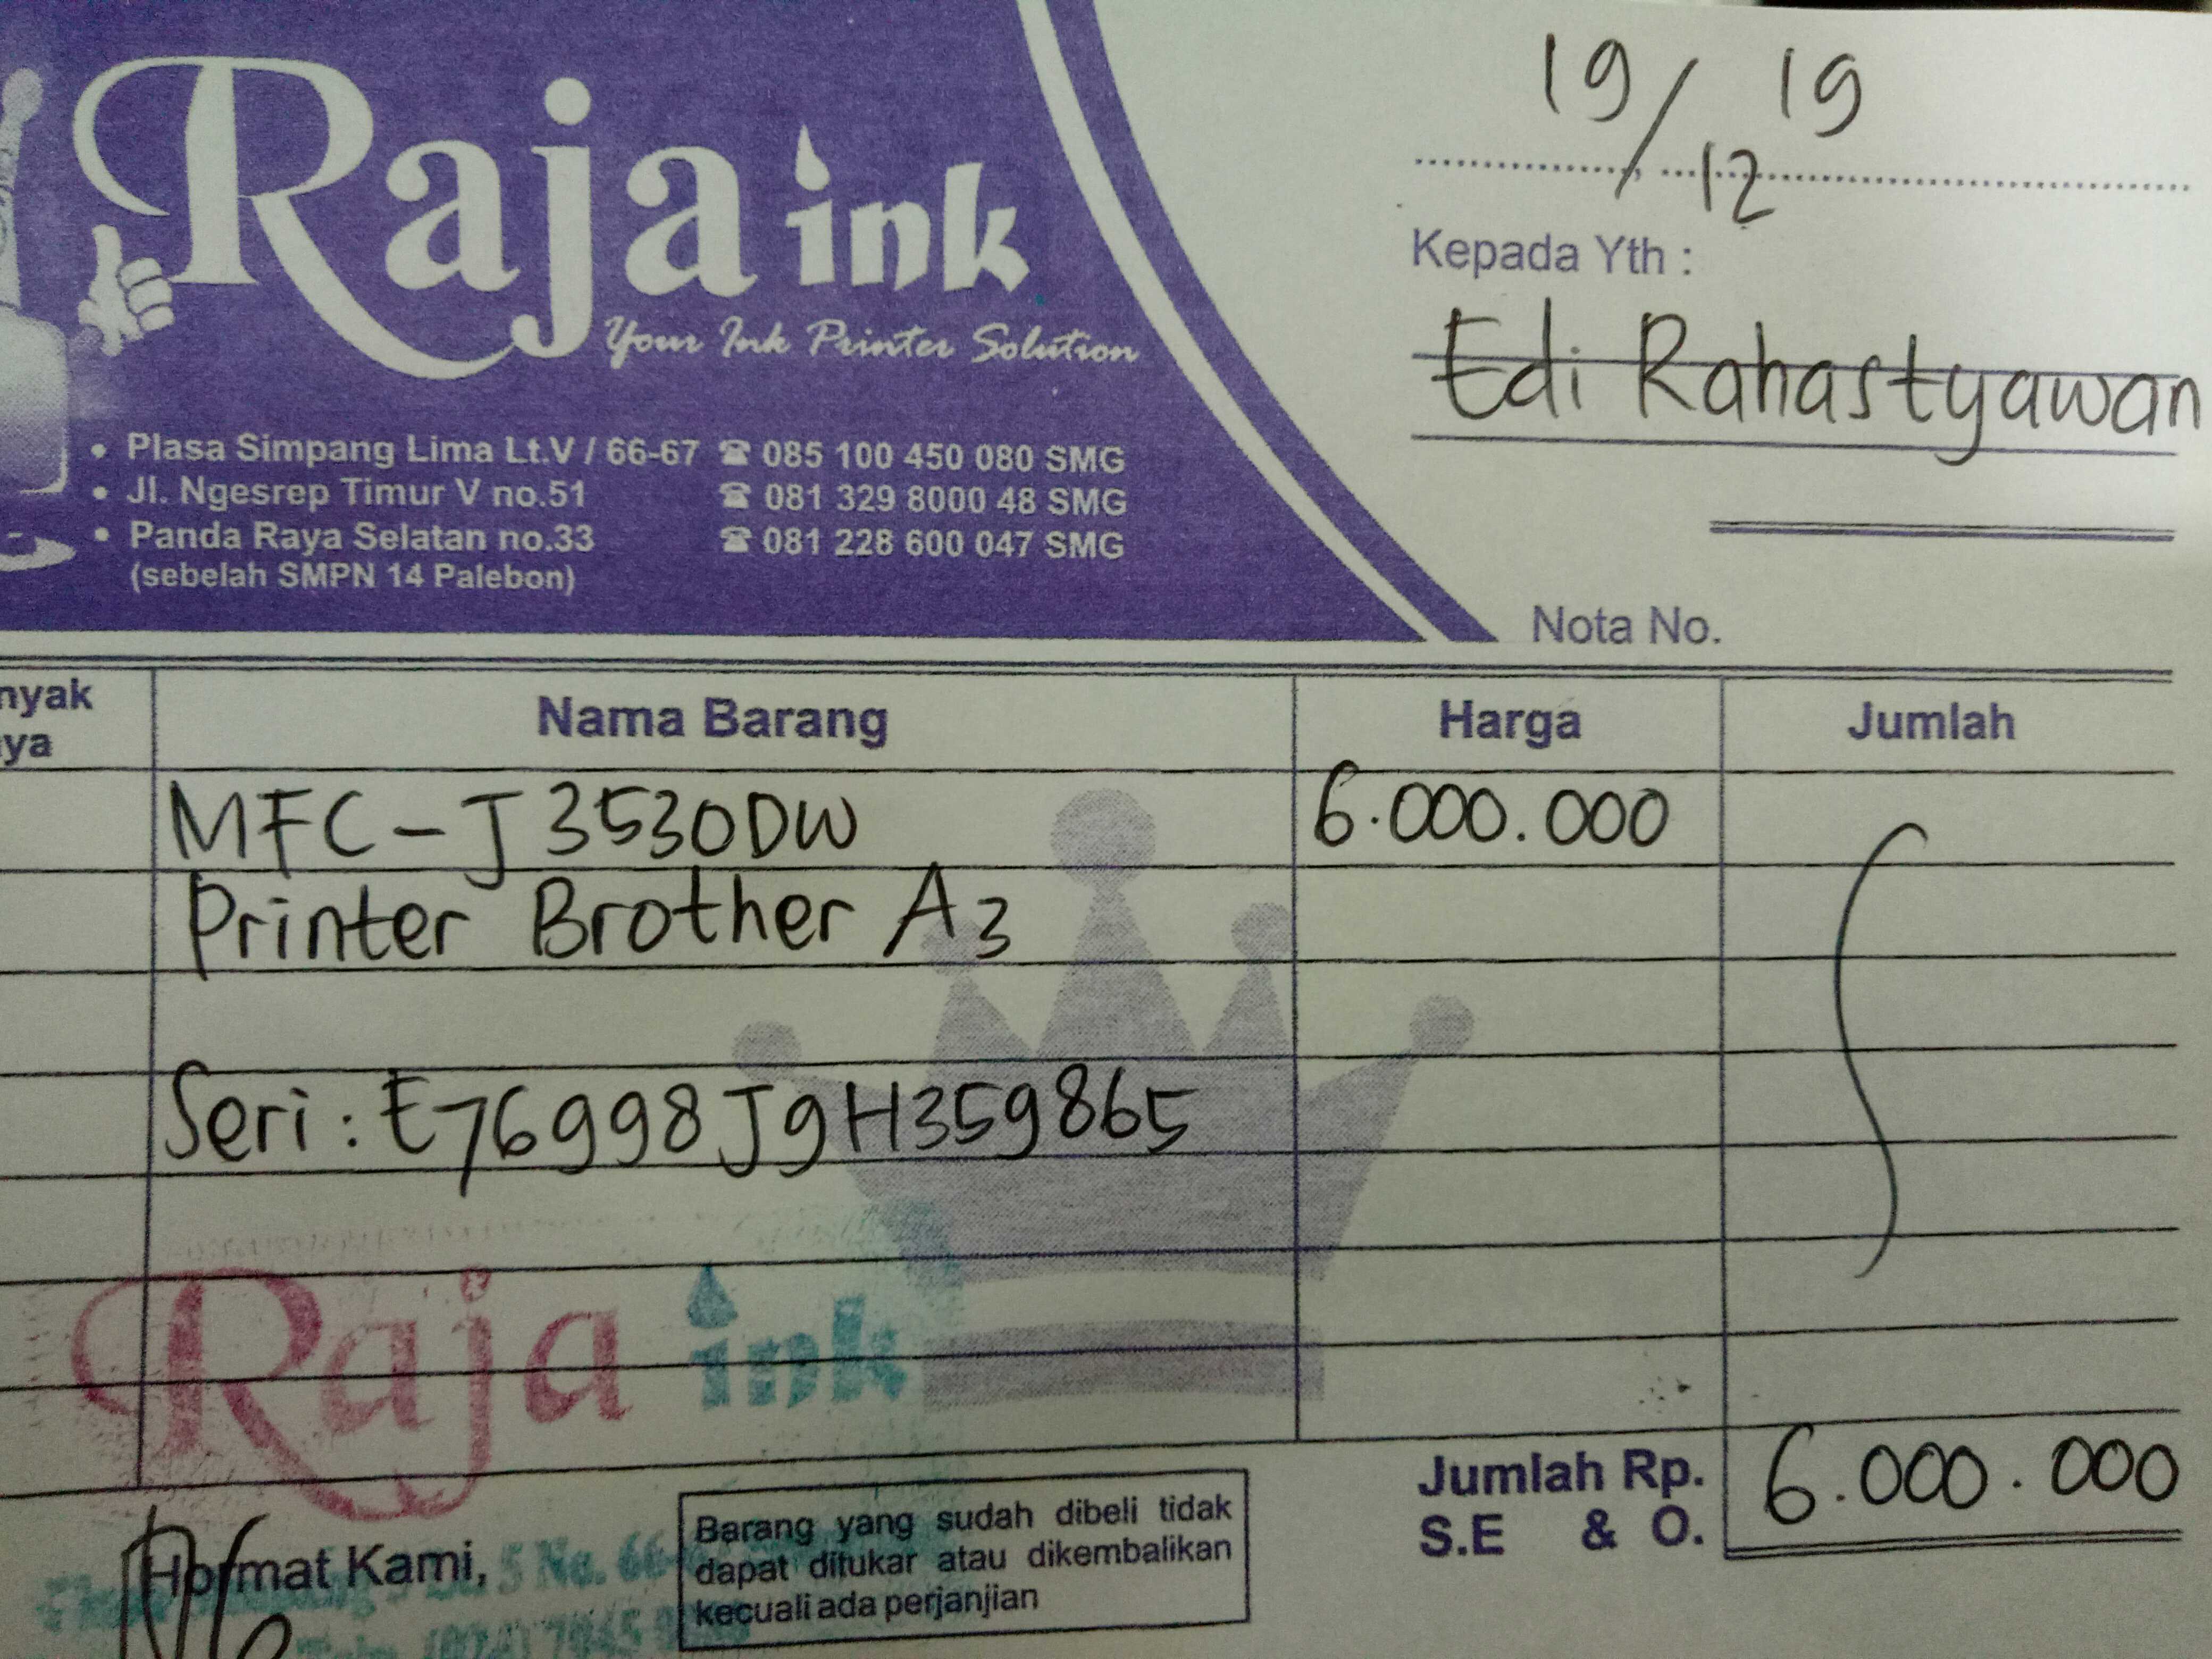 Raja ink
Your Ink Printer Solution
• Plasa Simpang Lima Lt.V / 66-67 ☎ 085 100 450 080 SMG
• Jl. Ngesrep Timur V no.51 ☎ 081 329 8000 48 SMG
• Panda Raya Selatan no.33 ☎ 081 228 600 047 SMG
(sebelah SMPN 14 Palebon)
19/12 19
Kepada Yth :
Edi Rahastyawan
Nota No.
nyak
ya
Nama Barang Harga Jumlah
MFC-J3530DW 6.000.000
Printer Brother A3
Seri : E76998J9H359865
Raja ink
Jumlah Rp. 6.000.000
S.E & O.
Hormat Kami,
5 No. 66
Barang yang sudah dibeli tidak
dapat ditukar atau dikembalikan
kecuali ada perjanjian